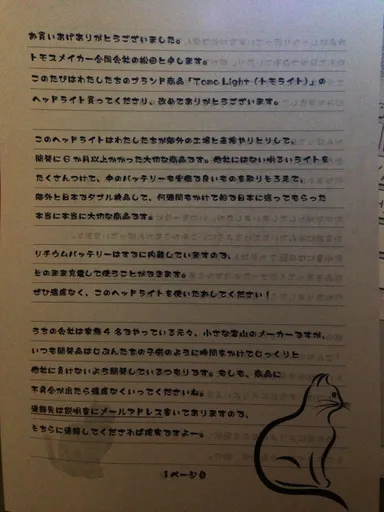 お買いあげありがとうございました。
トモスメイカー合同会社の松田と申します。
このたびはわたしたちのブランド商品「Tomo Light（トモライト）」の
ヘッドライト買ってくださり、改めてありがとうございます。
このヘッドライトはわたしたちが海外の工場と直接やりとりして、
開発に６か月以上かかった大切な商品です。他社にはない明るいライトを
たくさんつけて、中のバッテリーも安全で良いものを取りそろえて、
海外と日本でダブル検品して、何週間もかけて船で日本に送ってもらった
本当に本当に大切な商品です。
リチウムバッテリーはすでに内蔵していますので、
そのまま充電して使うことができます。
ぜひ遠慮なく、このヘッドライトを使いたおしてください！
うちの会社は家族４名でやっている元々、小さな富山のメーカーですが、
いつも開発品はじぶんたちの子供のように時間をかけてじっくりと
他社に負けないよう開発しているつもりです。もしも、商品に
不具合が出たら遠慮なくいってくださいね。
連絡先は説明書にメールアドレス書いてありますので、
そちらに連絡してくだされば確実ですよー。
1ページ目